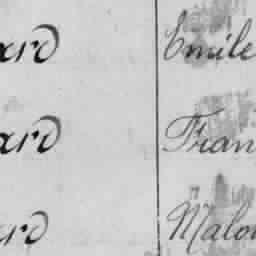 ard Emile
ard Fran
ard Malou